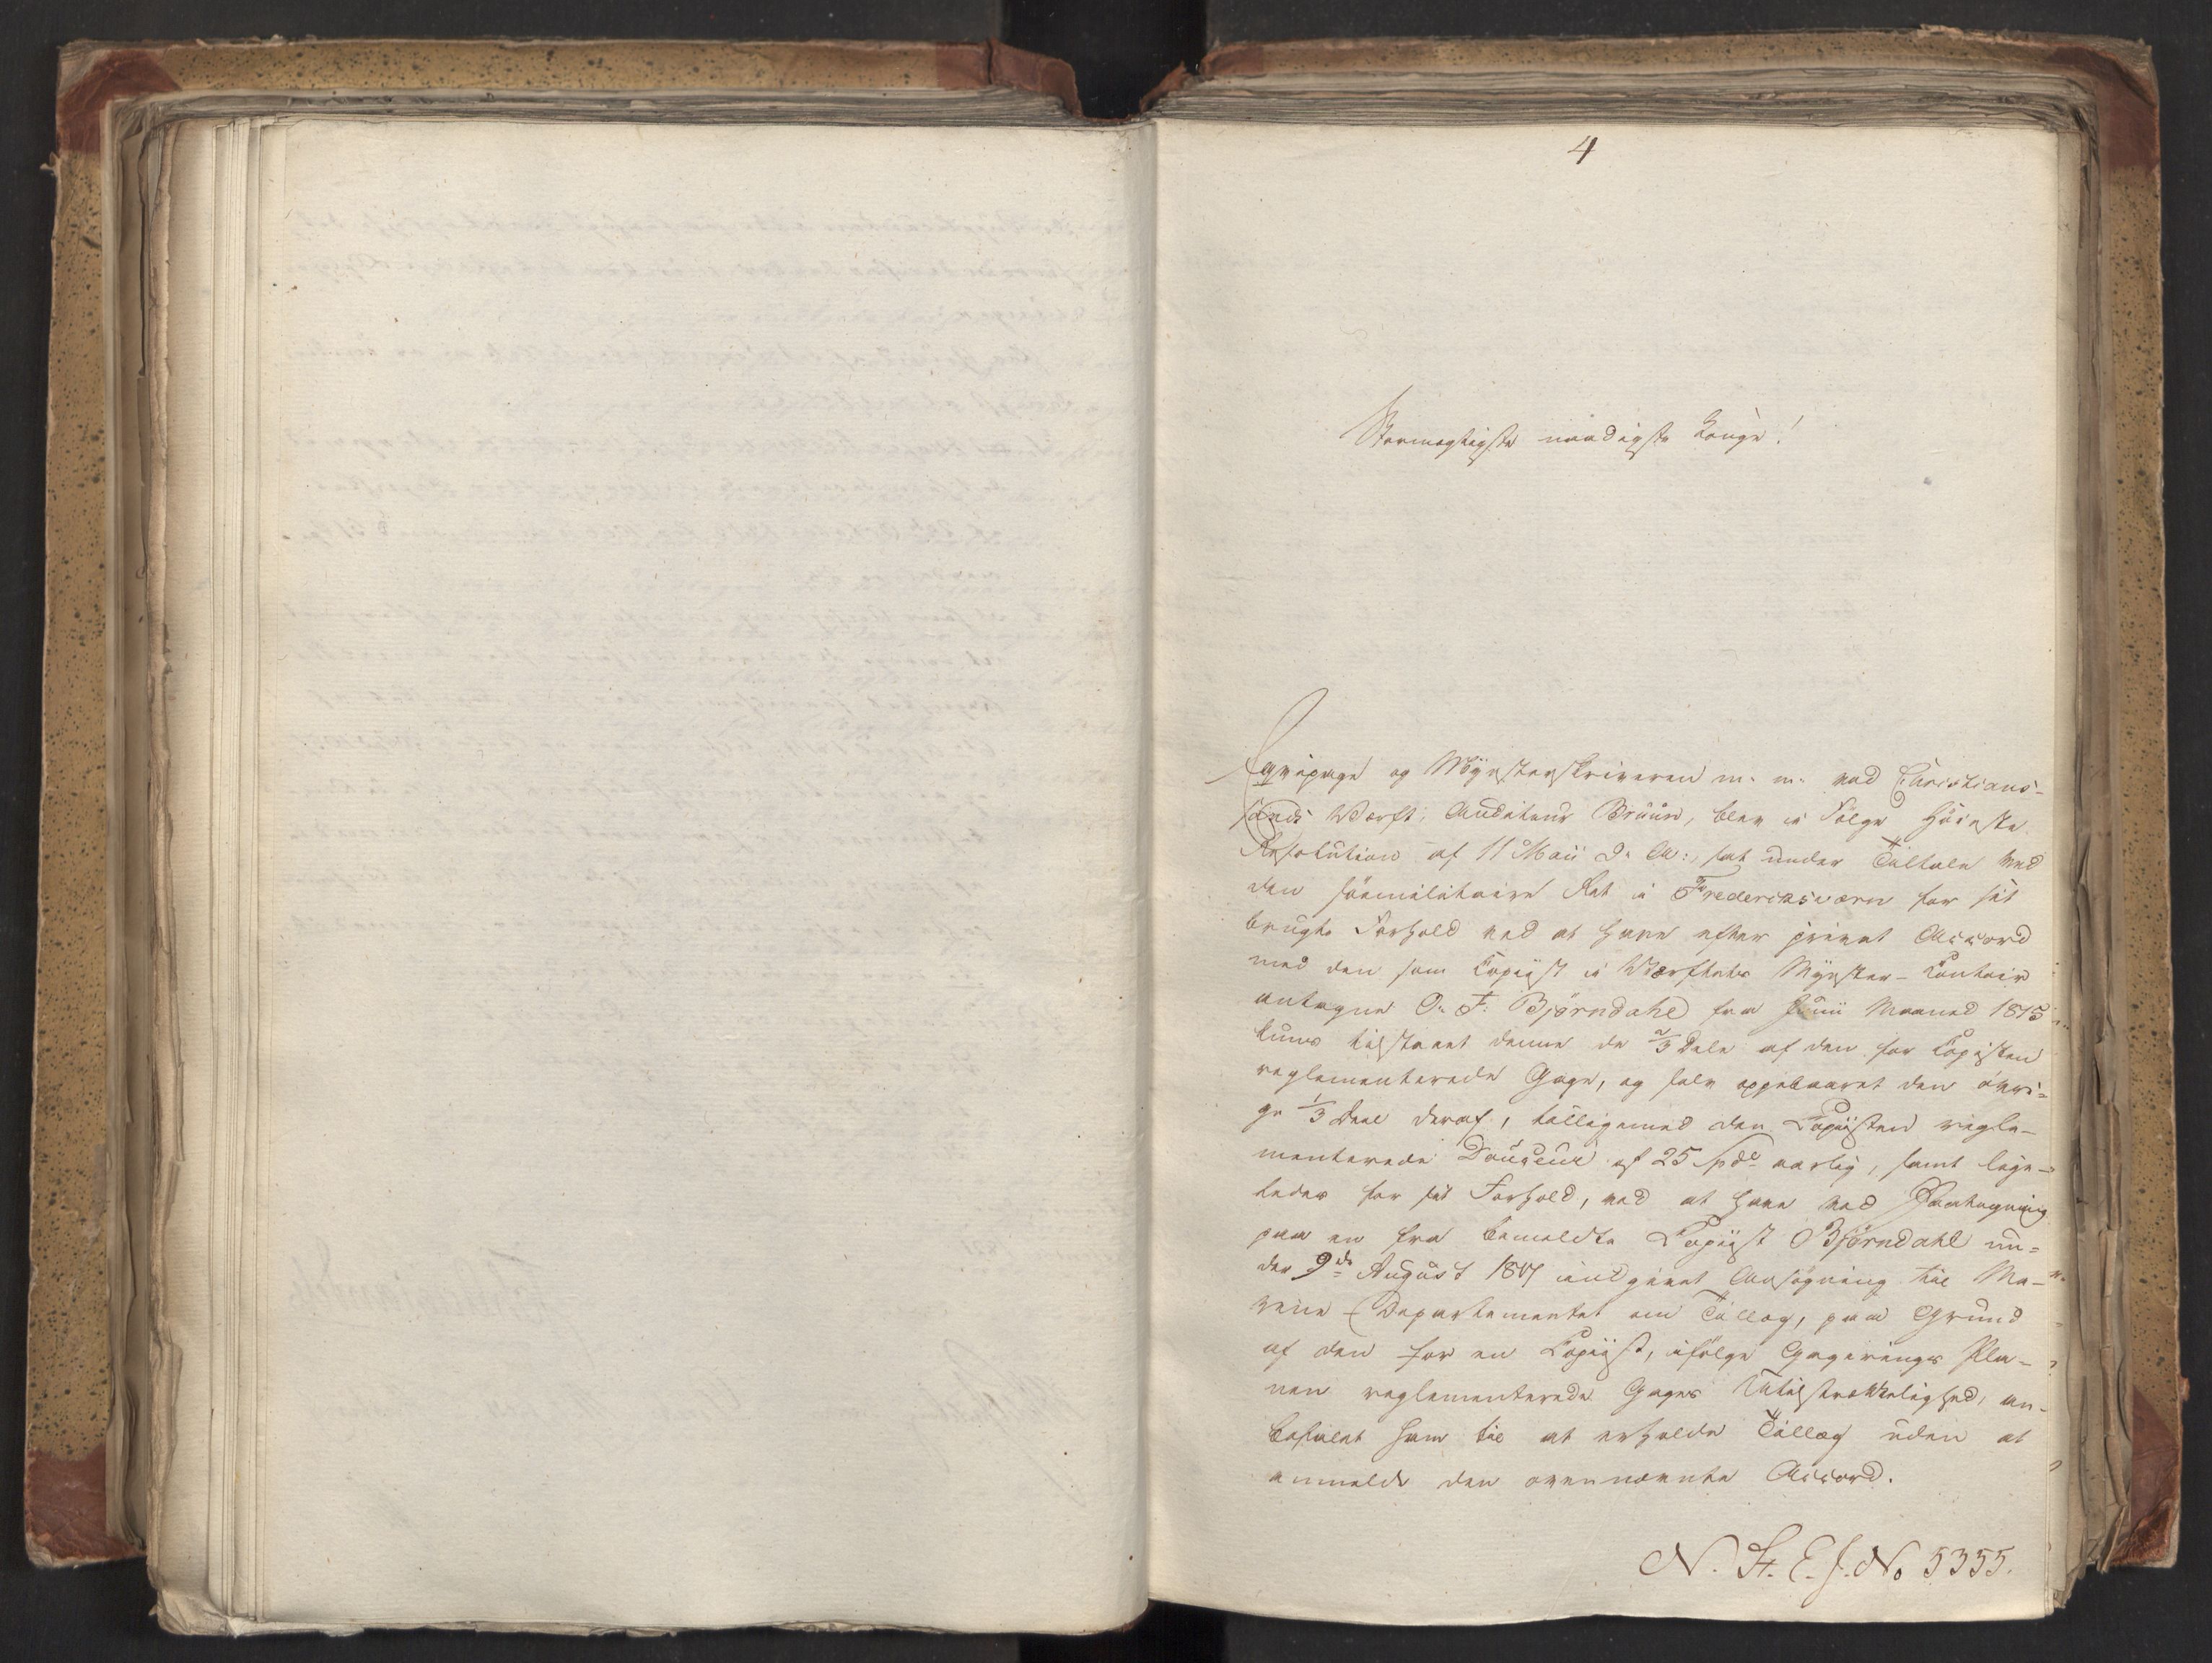 4
Stormægtigste naadigste Konge!
Eqvipage og Mynsterskriveren m. m. ved Christians-
sands Værft, Auditeur Bruun, blev i Følge Høieste
Resolution af 11 Maii d. A:, sat under Tiltale ved
den søemilitaire Ret i Frederiksværn for sit
brugte Forhold ved at have efter privat Accord
med den som Copiist i Værftets Mynster-Contoir
antagne O. F. Bjørndahl fra Junii Maaned 1815
kuns tilstaaet denne de 2/3 Dele af den for Copisten
reglementerede Gage, og selv oppebaaret den øvri=
ge 1/3 Deel deraf, tilligemed den Copiisten regle-
menterede Douceur af 25 Spd aarlig, samt lige-
ledes for sit Forhold, ved at have ved Paategning
paa en fra bemeldte Copiist Bjørndahl un=
der 9de August 1817 indgivet Ansøgning til Ma-
rine-Departementet om Tillæg, paa Grund
af den for en Copiist, ifølge Gagerings Pla-
nen reglementerede Gages Utilstrækkelighed, an-
befalet ham til at erholde Tillæg uden at
anmelde den ovennævnte Accord.
N. St. E. J. No 5355.